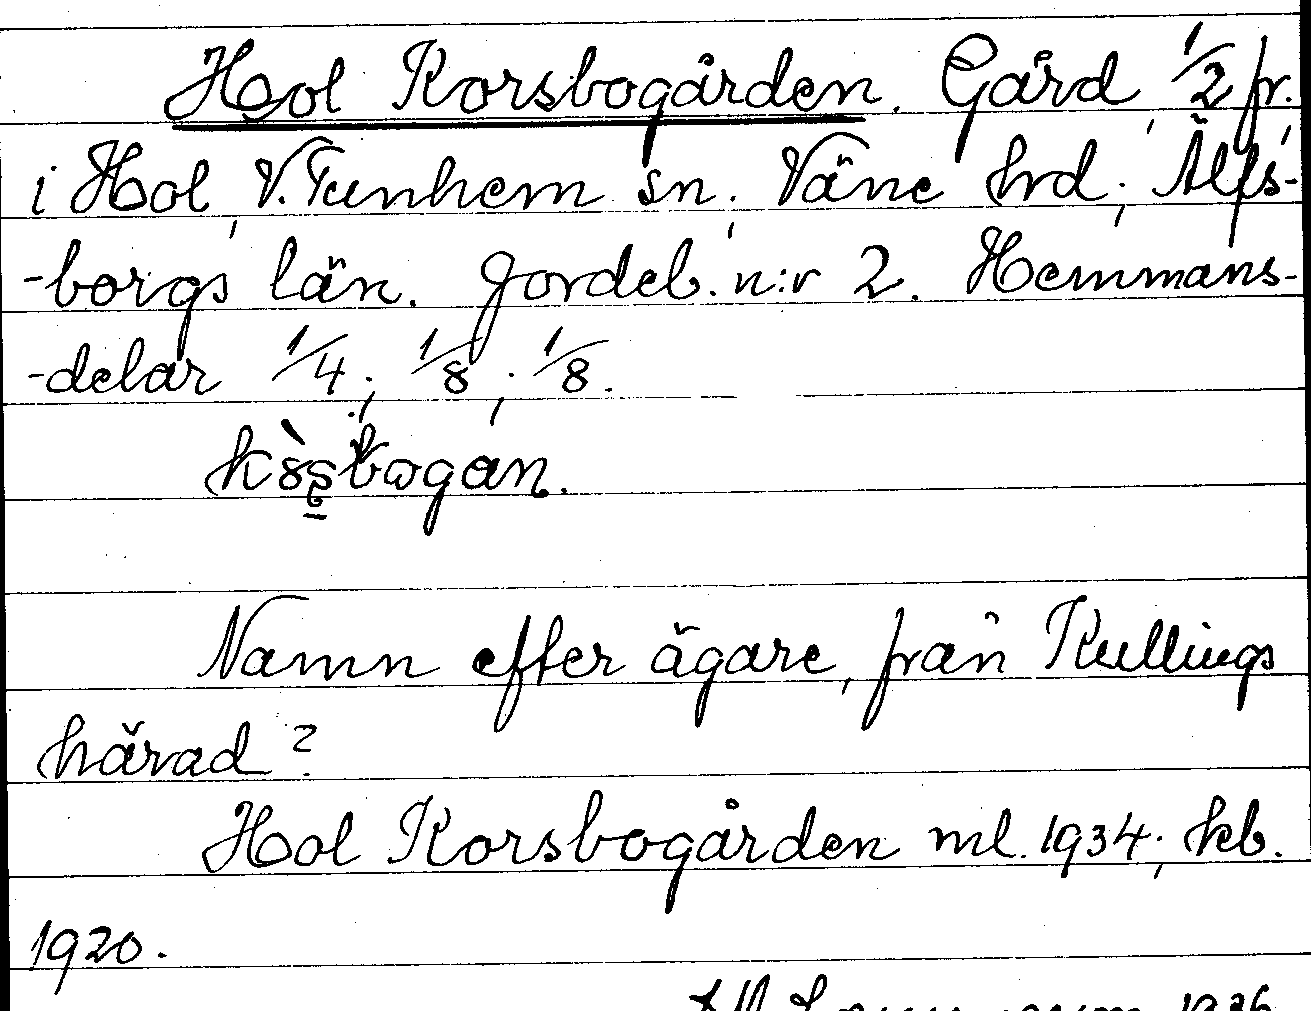 Hol Korsbogården. Gård, 1/2 fr.,
i Hol, V. Tunhem sn; Väne hrd; Älfs-
-borgs län. Jordeb. n:r 2. Hemmans-
-delar 1/4; 1/8; 1/8.
Namn efter ägare, från Kullings
härad?
Hol Korsbogården ml. 1934; kb.
1920.
1936